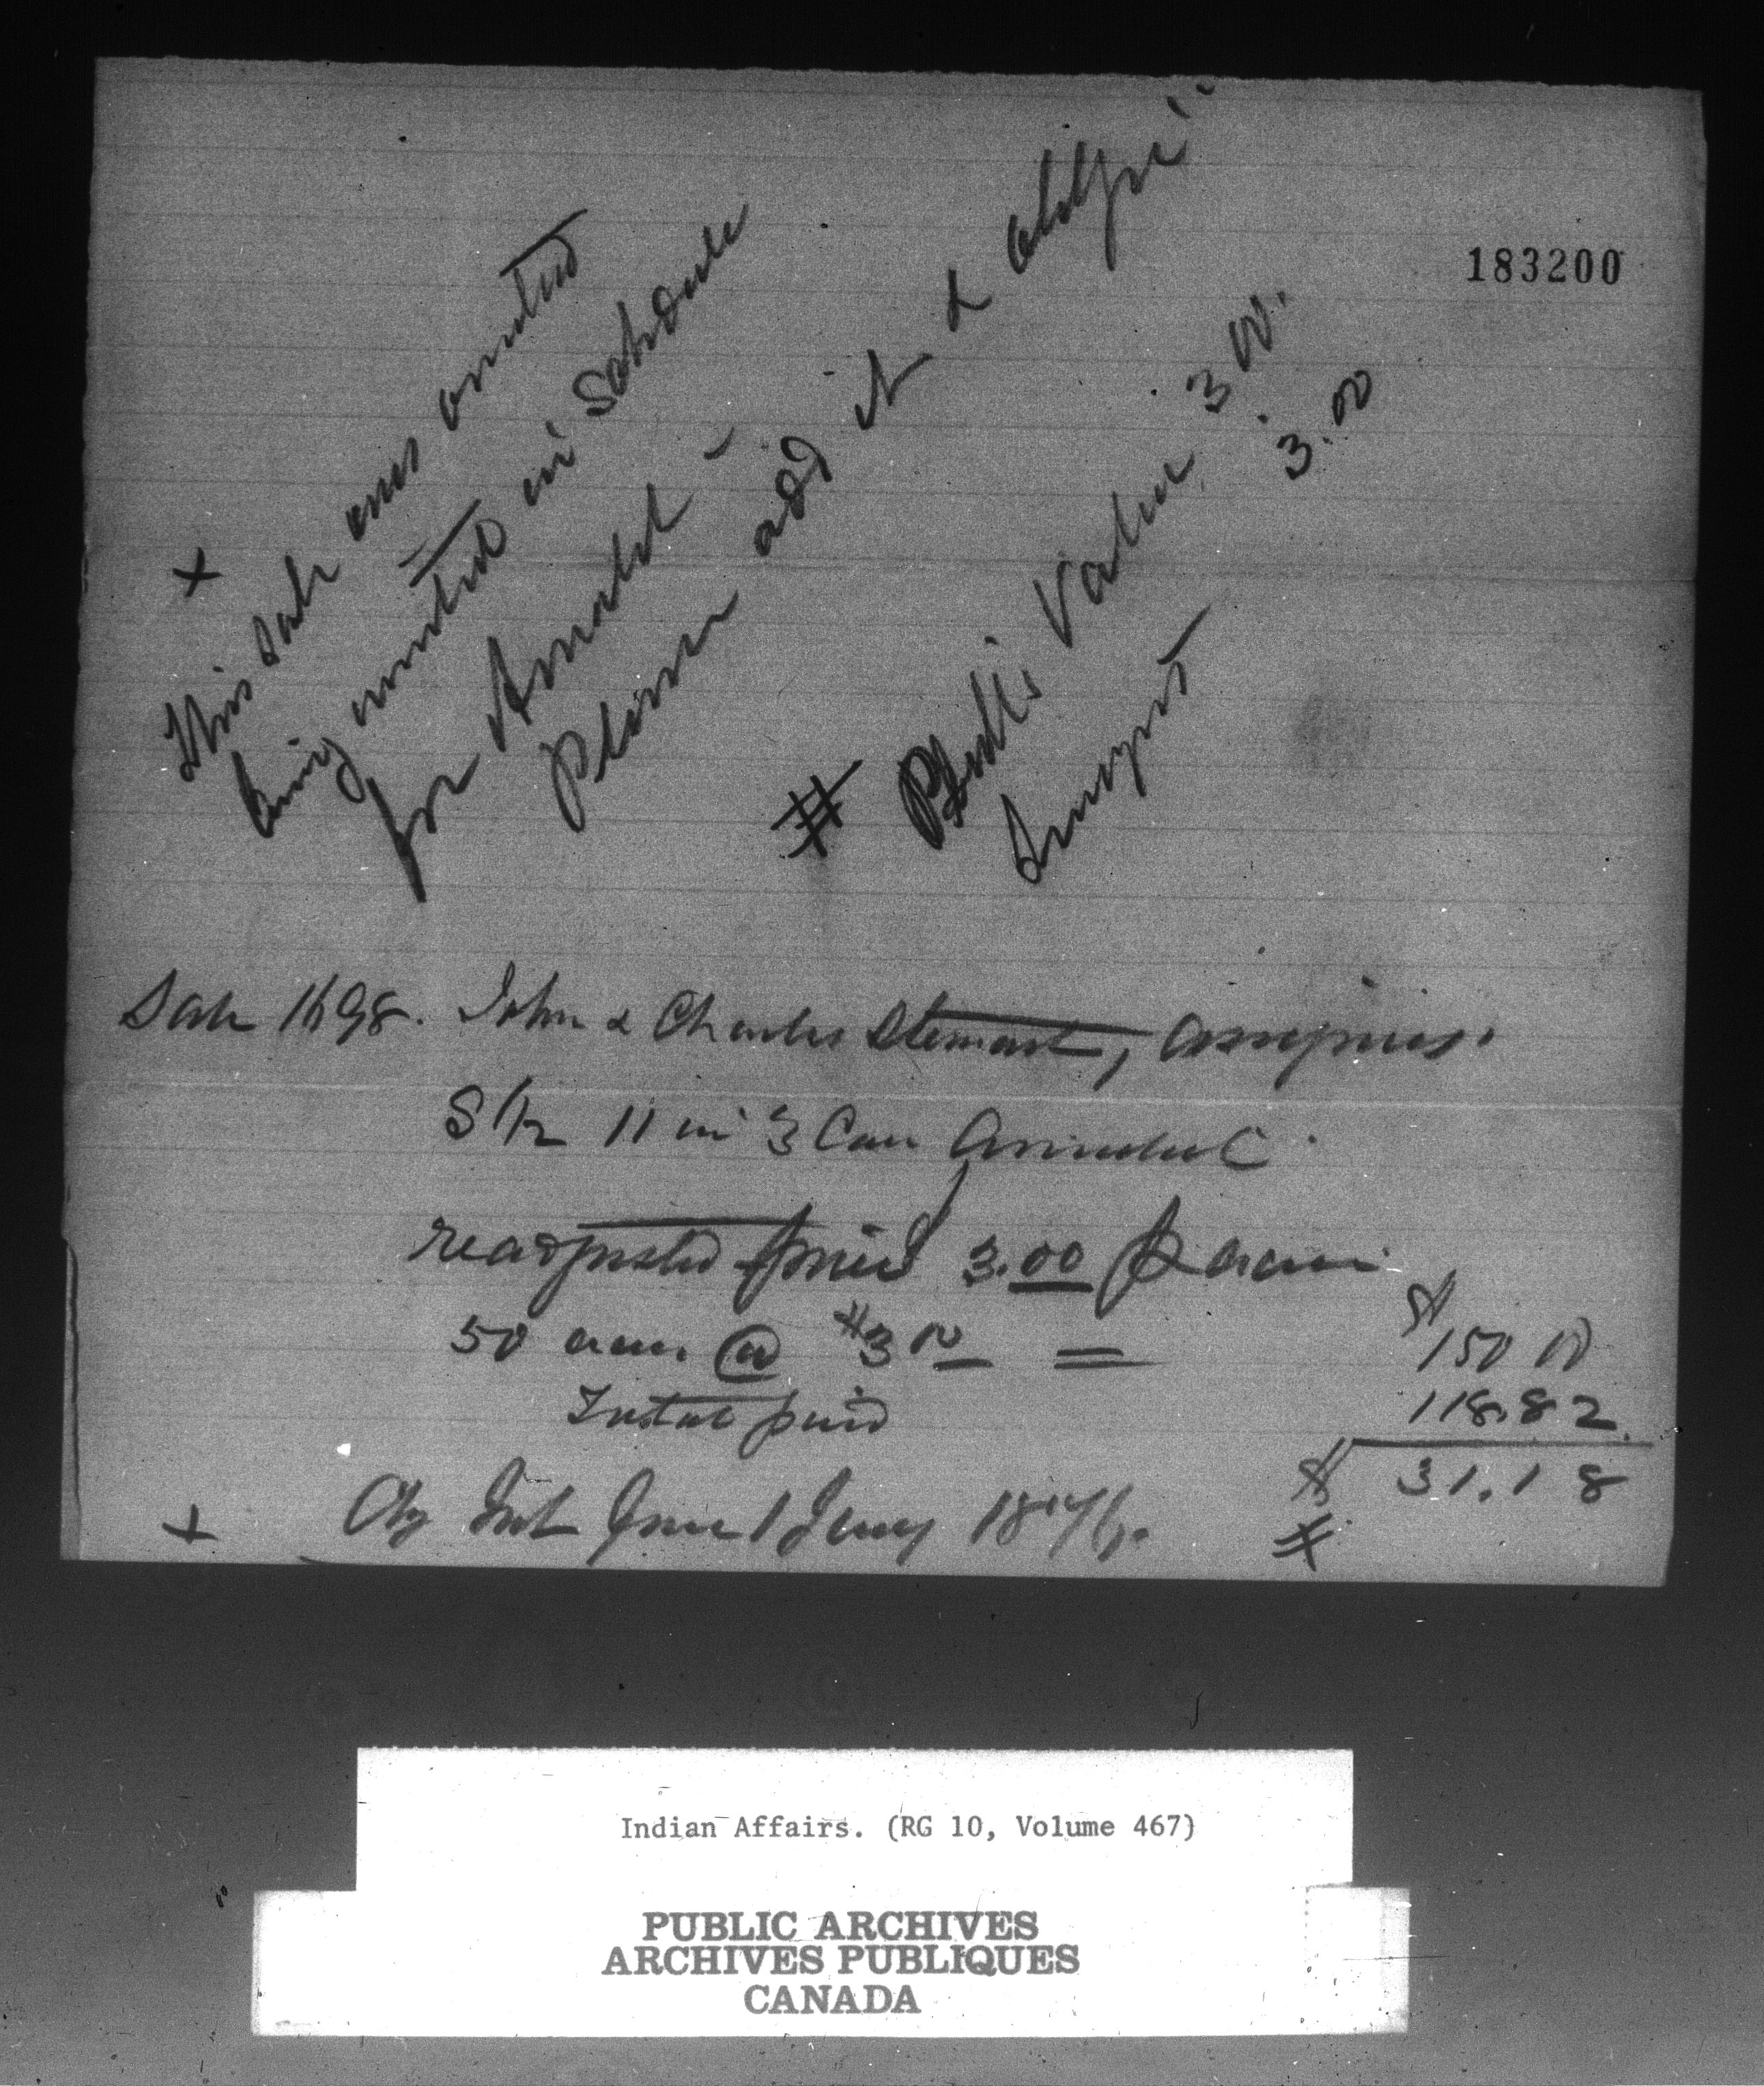 183200
+
This Sale was omitted
being omitted in Schedule
for Amabel -
Please add it & oblige
# Values 3 00.
3.00
Sale 1698. John & Charles Stewart, assignees.
S 1/2 11 in 3 Con Amabel
readjusted price 3.00 P acre
50 acres @ $3 00 = $150 00
Total paid 118.82
$ 31.18
+ Int from 1 Jany 1876. #
Indian Affairs. (RG 10, Volume 467)
PUBLIC ARCHIVES
ARCHIVES PUBLIQUES
CANADA